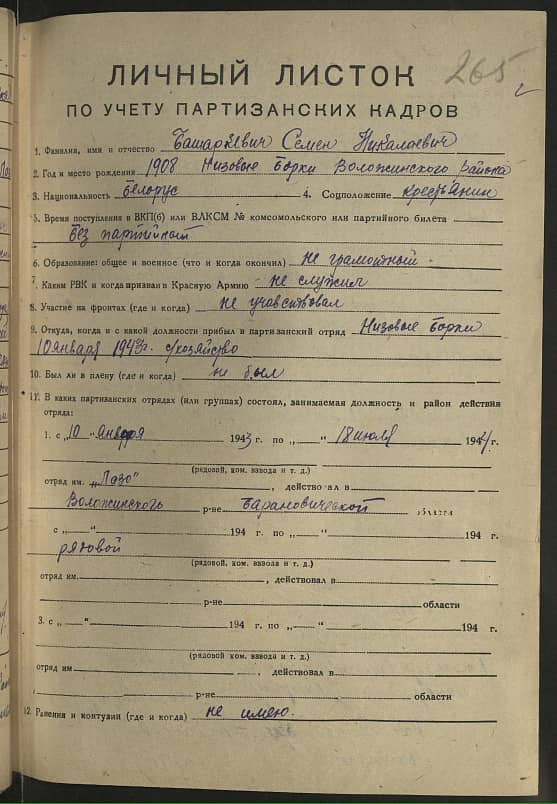 265
ЛИЧНЫЙ ЛИСТОК
ПО УЧЕТУ ПАРТИЗАНСКИХ КАДРОВ
1. Фамилия, имя и отчество Башаркевич Семен Николаевич
2. Год и место рождения 1908 Низовые Борки Воложинского Района
3. Национальность белорус 4. Соцположение крестьянин
5. Время поступления в ВКП(б) или ВЛКСМ № комсомольского или партийного билета
без партийный
6. Образование: общее и военное (что и когда окончил) не грамотный
7. Каким РВК и когда призван в Красную Армию не служил
8. Участие на фронтах (где и когда) не учавствовал
9. Откуда, когда и с какой должности прибыл в партизанский отряд Низовые Борки
10 января 1943г. с/хозяйство
10. Был ли в плену (где и когда) не был
11. В каких партизанских отрядах (или группах) состоял, занимаемая должность и район действия
отряда:
1. с „10“ января 1943 г. по „ “ 18 июля 1944 г.
(рядовой, ком. взвода и т. д.)
отряд им. „Лазо“, действовал в
Воложинского р-не Барановической области
с „ “ 194 г. по „ “ 194 г.
рядовой
(рядовой, ком. взвода и т. д.)
отряд им. , действовал в
р-не области
3. с „ “ 194 г. по „ “ 194 г.
(рядовой ком. взвода и т. д.)
отряд им , действовал в
р-не области
12. Ранения и контузии (где и когда) не имею.